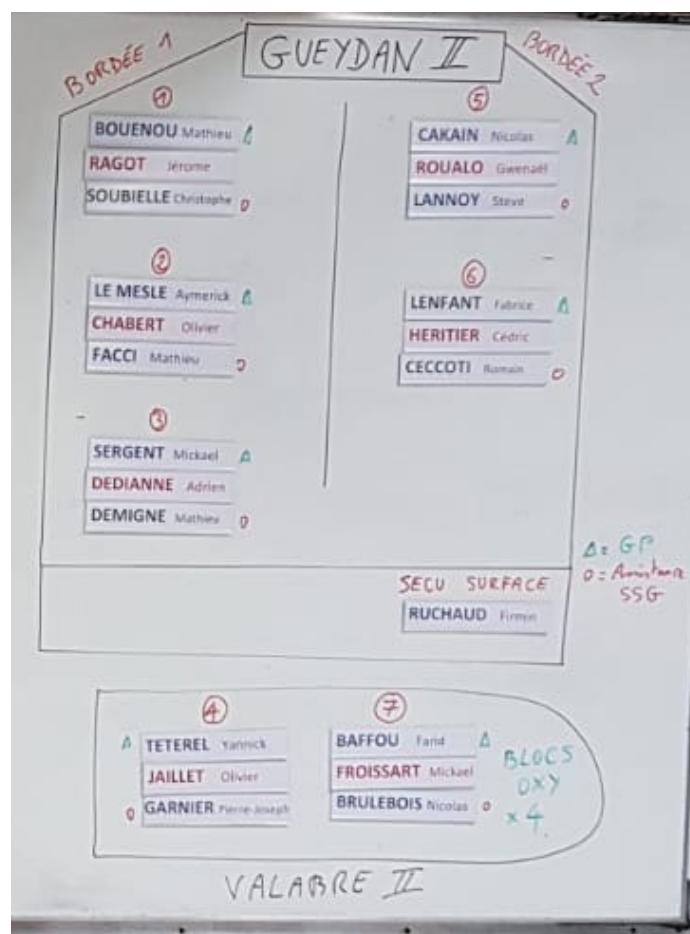 GUEYDAN II
BORDÉE 1
BORDÉE 2
1
BOUENOU Mathieu Δ
RAGOT Jérome
SOUBIELLE Christophe O
2
LE MESLE Aymerick Δ
CHABERT Olivier
FACCI Mathieu O
3
SERGENT Mickael Δ
DEDIANNE Adrien
DEMIGNE Mathieu O
5
CAKAIN Nicolas Δ
ROUALO Gwenaël
LANNOY Steve O
6
LENFANT Fabrice Δ
HERITIER Cédric
CECCOTI Romain O
Δ = GP
O = Assistance
SSG
SECU SURFACE
RUCHAUD Firmin
4
Δ TETEREL Yannick
JAILLET Olivier
O GARNIER Pierre-Joseph
7
BAFFOU Farid Δ
FROISSART Mickael
BRULEBOIS Nicolas O
BLOCS
OXY
x 4.
VALABRE II